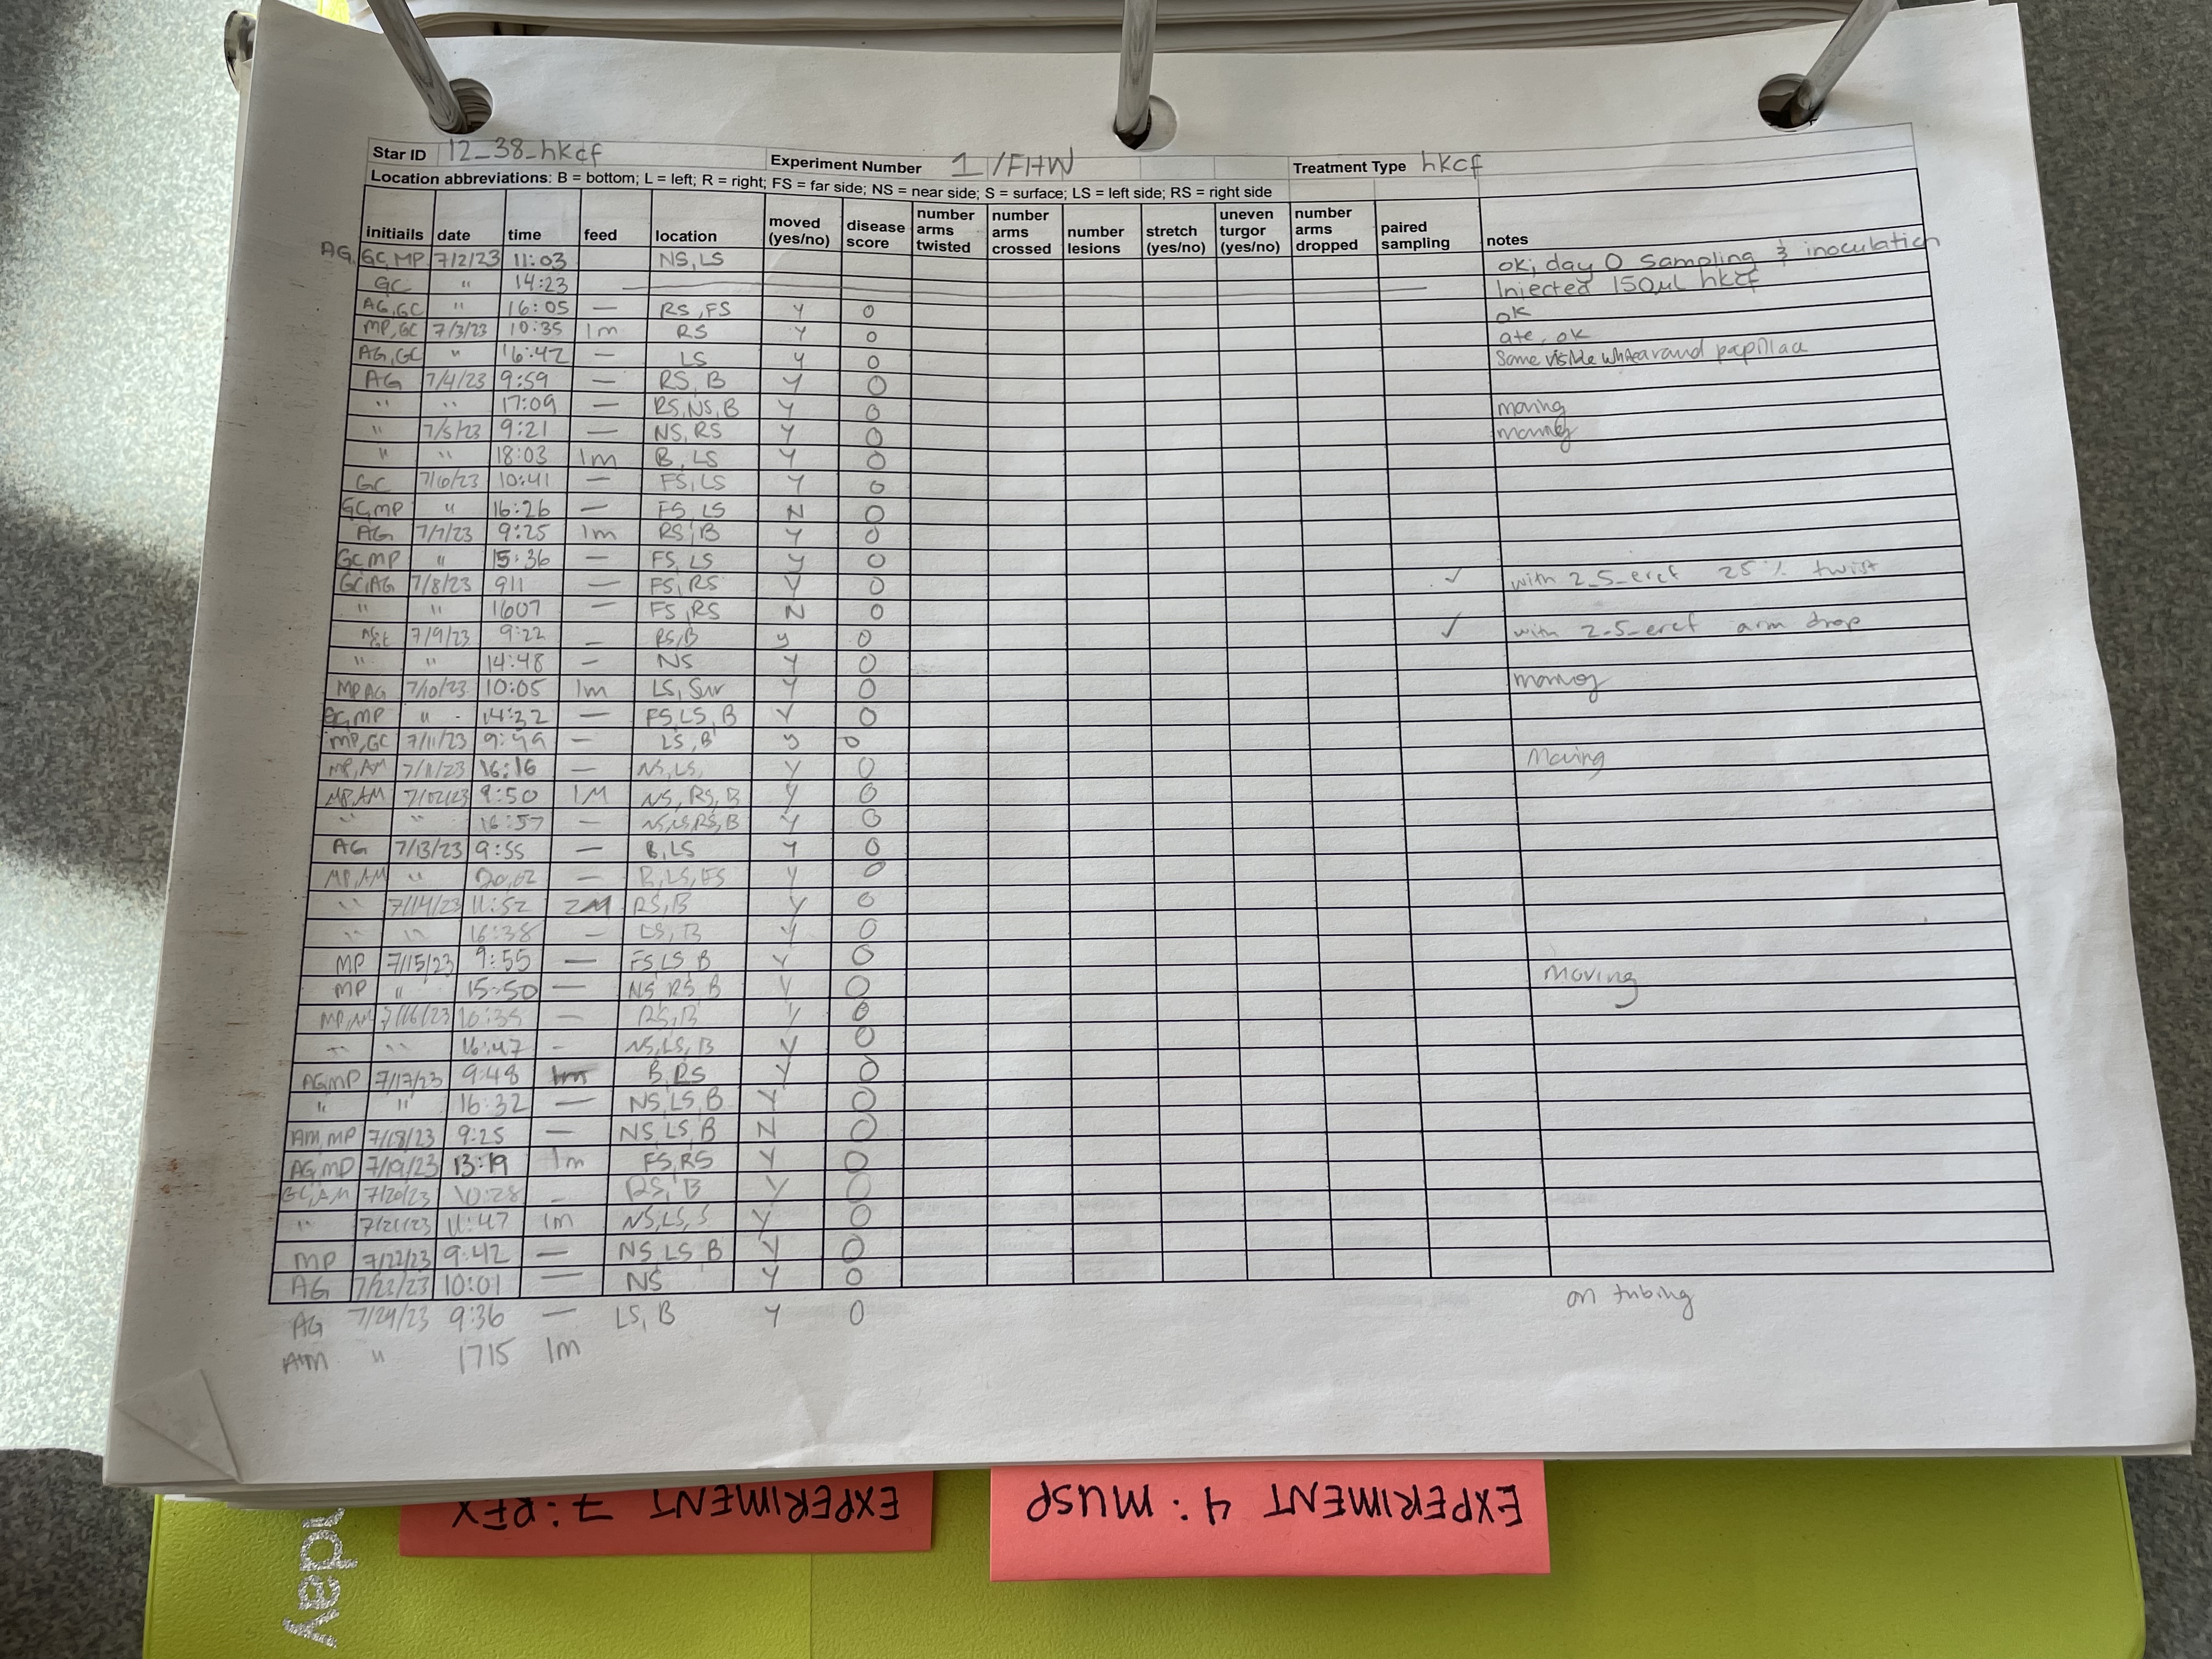 Star ID 12_38_hkcf Experiment Number 1/FHW Treatment Type hkcf
Location abbreviations: B = bottom; L = left; R = right; FS = far side; NS = near side; S = surface; LS = left side; RS = right side
initiails date time feed location moved (yes/no) disease score number arms twisted number arms crossed number lesions stretch (yes/no) uneven turgor (yes/no) number arms dropped paired sampling notes
AG, GC, MP 7/2/23 11:03 NS, LS ok; day 0 sampling & inoculation
GC " 14:23 Injected 150µl hkcf
AG, GC " 16:05 — RS, FS Y 0 ok
MP, GC 7/3/23 10:35 1m RS Y 0 ate, ok
AG, GC " 16:42 — LS Y 0 Some visible white around papillae
AG 7/4/23 9:59 — RS, B Y 0
" " 17:09 — RS, NS, B Y 0 moving
" 7/5/23 9:21 — NS, RS Y 0 moving
" " 18:03 1m B, LS Y 0
GC 7/6/23 10:41 — FS, LS Y 0
GC, MP " 16:26 — FS, LS N 0
AG 7/7/23 9:25 1m RS, B Y 0
GC, MP " 15:36 — FS, LS Y 0
GC, AG 7/8/23 911 — FS, RS Y 0 ✓ with 2_5_ercf 25% twist
" " 1607 — FS, RS N 0
7/9/23 9:22 — RS, B y 0 ✓ with 2-5-ercf arm drop
" " 14:48 — NS Y 0
MP, AG 7/10/23 10:05 1m LS, Sur Y 0 moving
MP " 14:32 — FS, LS, B Y 0
MP, GC 7/11/23 9:49 — LS, B y 0
MP, AM 7/11/23 16:16 — NS, LS, Y 0 Moving
MP, AM 9:50 1M NS, RS, B Y 0
" " 16:57 — NS, LS, RS, B Y 0
AG 7/13/23 9:55 — B, LS Y 0
MP, AM " — LS, FS Y 0
" 7/14/23 11:52 2M RS, B Y 0
" " 16:38 — LS, B Y 0
MP 7/15/23 9:55 — FS, LS B Y 0
MP " 15:50 — NS RS B Y 0 Moving
MP, AM 7/16/23 10:35 — RS, B Y 0
" " 16:47 - NS, LS, B Y 0
AG, MP 7/17/23 9:48 1m B, RS Y 0
" " 16:32 — NS, LS, B Y 0
AM, MP 7/18/23 9:25 — NS, LS, B N 0
AG, MP 7/19/23 13:19 1m FS, RS Y 0
GC, AM 7/20/23 10:28 - RS, B Y 0
" 7/21/23 11:47 1m NS, LS, S Y 0
MP 7/22/23 9:42 — NS, LS, B Y 0
AG 10:01 — NS Y 0 on tubing
AG 7/24/23 9:36 — LS, B Y 0
AM " 1715 1m
EXPERIMENT 7: PFX
EXPERIMENT 4: MUSP